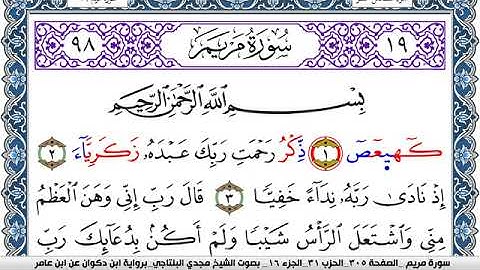 ١٩ سُورَةُ مَرْيَمَ ٩٨
بِسْمِ اللَّهِ الرَّحْمَٰنِ الرَّحِيمِ
كٓهيعٓصٓ ١ ذِكْرُ رَحْمَتِ رَبِّكَ عَبْدَهُۥ زَكَرِيَّآءَ ٢
إِذْ نَادَىٰ رَبَّهُۥ نِدَآءً خَفِيًّا ٣ قَالَ رَبِّ إِنِّى وَهَنَ ٱلْعَظْمُ
مِنِّى وَٱشْتَعَلَ ٱلرَّأْسُ شَيْبًا وَلَمْ أَكُنۢ بِدُعَآئِكَ رَبِّ
سورة مريم _ الصفحة ٣٠٥ _ الحزب ٣١ _ الجزء ١٦ _ بصوت الشيخ مجدي البلتاجي _ برواية ابن ذكوان عن ابن عامر